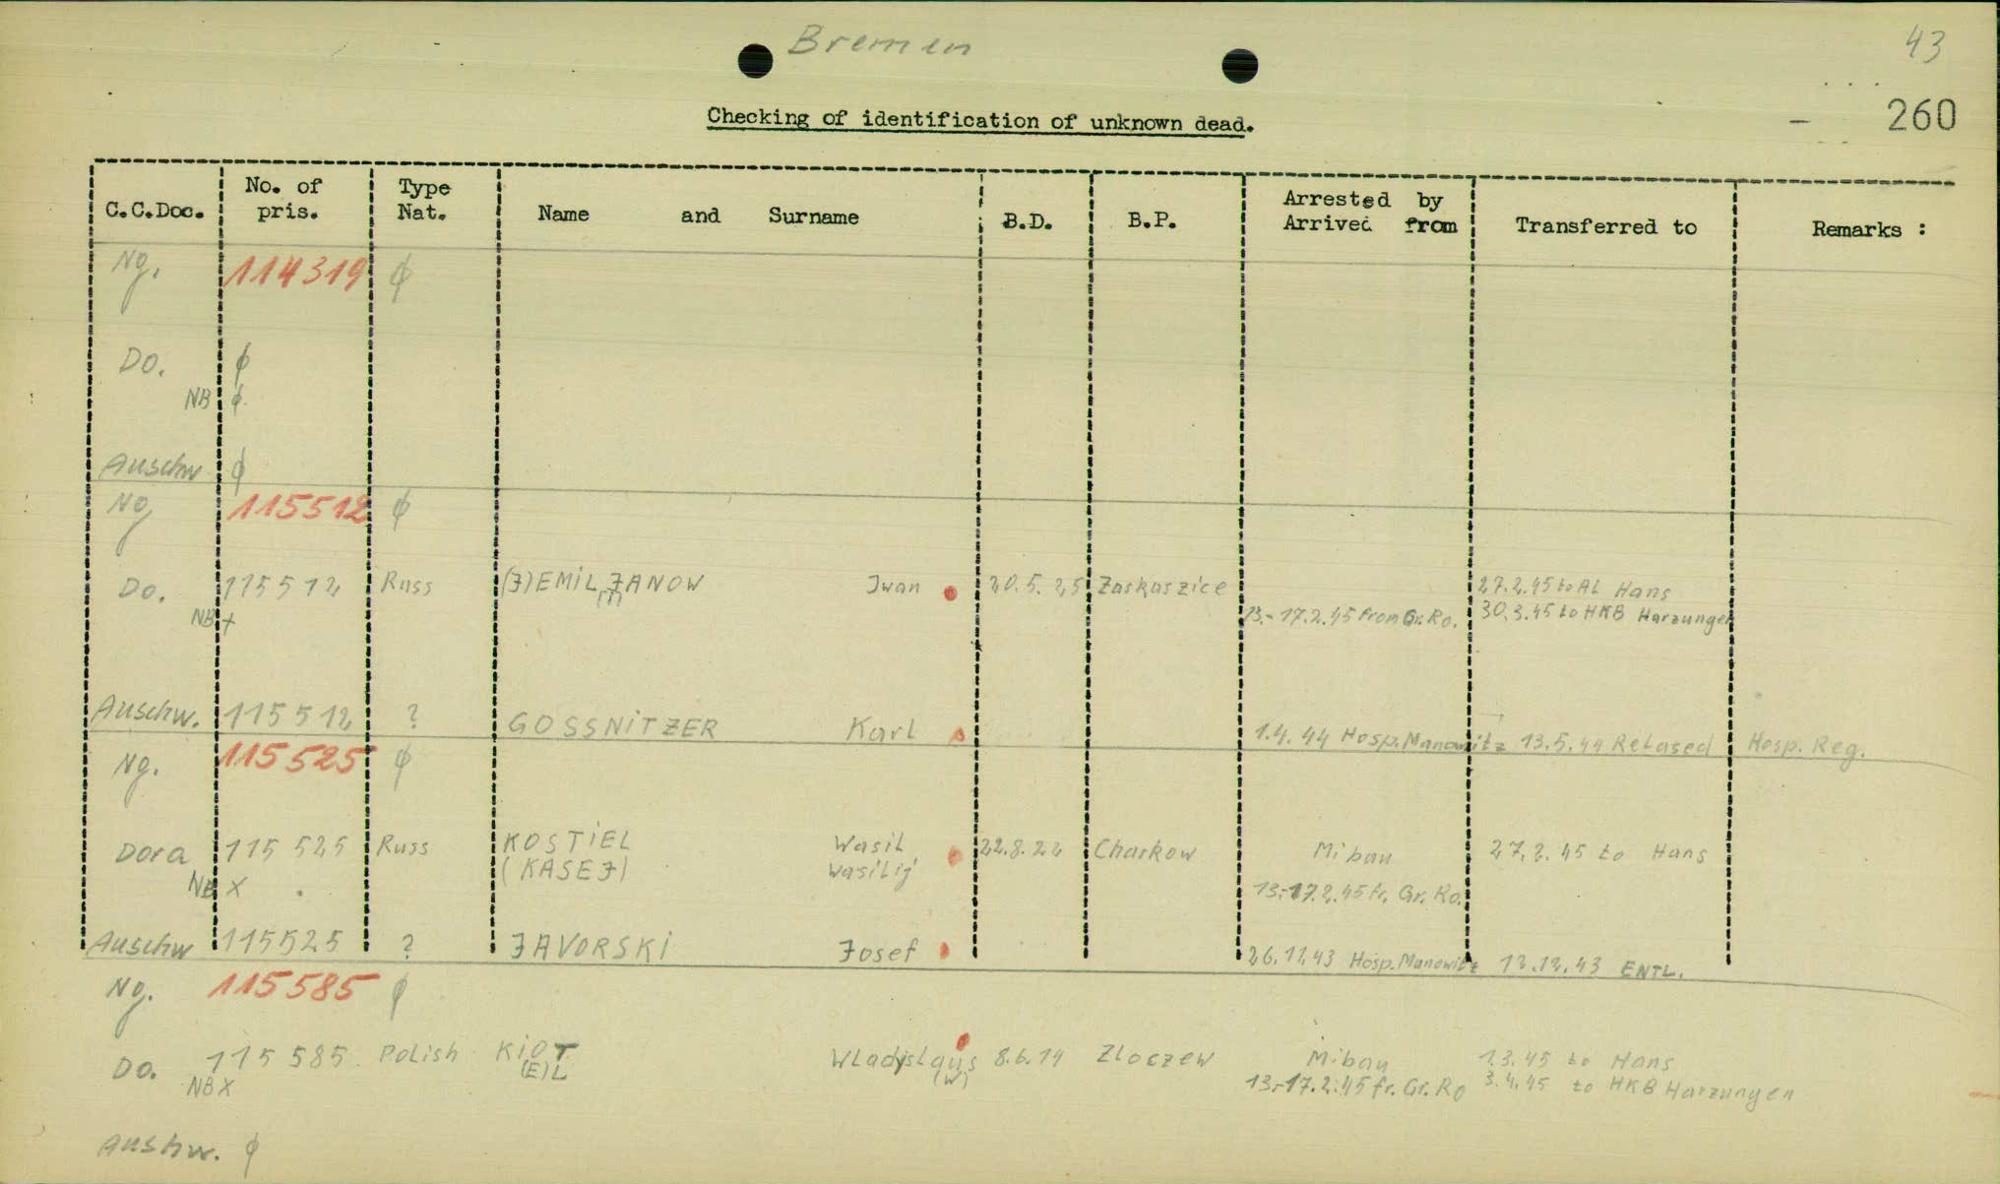 Bremen
43
- 260
Checking of identification of unknown dead.
C.C.Doc. No. of pris. Type Nat. Name and Surname B.D. B.P. Arrested by Arrived from Transferred to Remarks :
Ng. 114319 ϕ
Do. ϕ
NB ϕ
Auschw ϕ
Ng 115512 ϕ
Do. 115512 Russ (J)EMILJANOW Jwan 20.5.25 Zaskaszice 27.2.45 to AL Hans
NB + 13.-17.2.45 from Gr.Ro. 30.3.45 to HKB Harzungen
Auschw. 115512 ? GOSSNiTZER Karl 1.4.44 Hosp.Manowitz 13.5.44 Relased Hosp. Reg.
Ng. 115525 ϕ
Dora 115 525 Russ KOSTiEL Wasil 22.8.22 Charkow Mibau 27.2.45 to Hans
(KASEJ) Wasilij
NB X 13.-17.2.45 fr. Gr. Ro.
Auschw 115525 ? JAVORSKi Josef 26.11.43 Hosp.Manowitz 12.12.43 ENTL.
Ng. 115585 ϕ
Do. 115 585 Polish KiOT Wladyslaus 8.6.14 Zloczew Mibau 1.3.45 to Hans
(E)L (W)
NB X 13.-17.2.45 fr. Gr. Ro 3.4.45 to HKB Harzungen
Aushw. ϕ